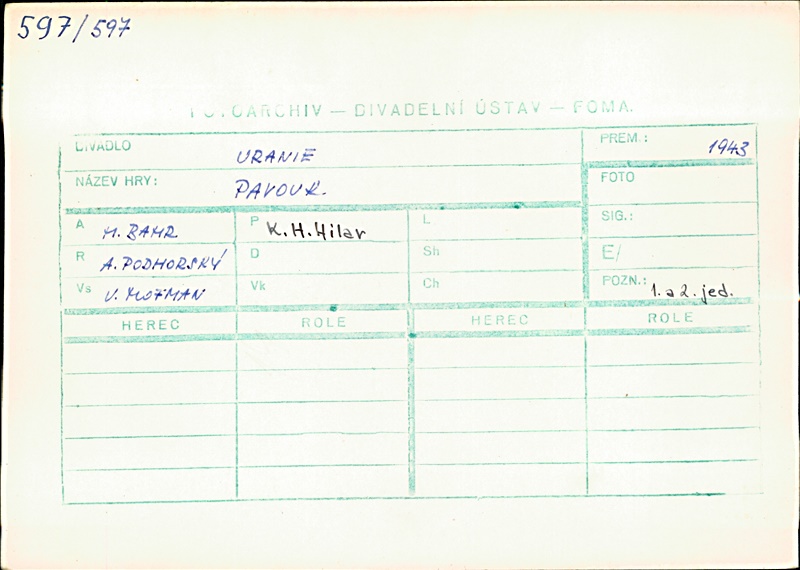 597/597
FOTOARCHIV — DIVADELNÍ ÚSTAV — FOMA.
DIVADLO URANIE
PREM.: 1943
NÁZEV HRY: PAVOUK.
FOTO
A H. BAHR
P K.H.Hilar
L
SIG.:
R A. PODHORSKÝ
D
Sh
E/
Vs V. HOFMAN
Vk
Ch
POZN.: 1. a 2. jed.
HEREC ROLE HEREC ROLE